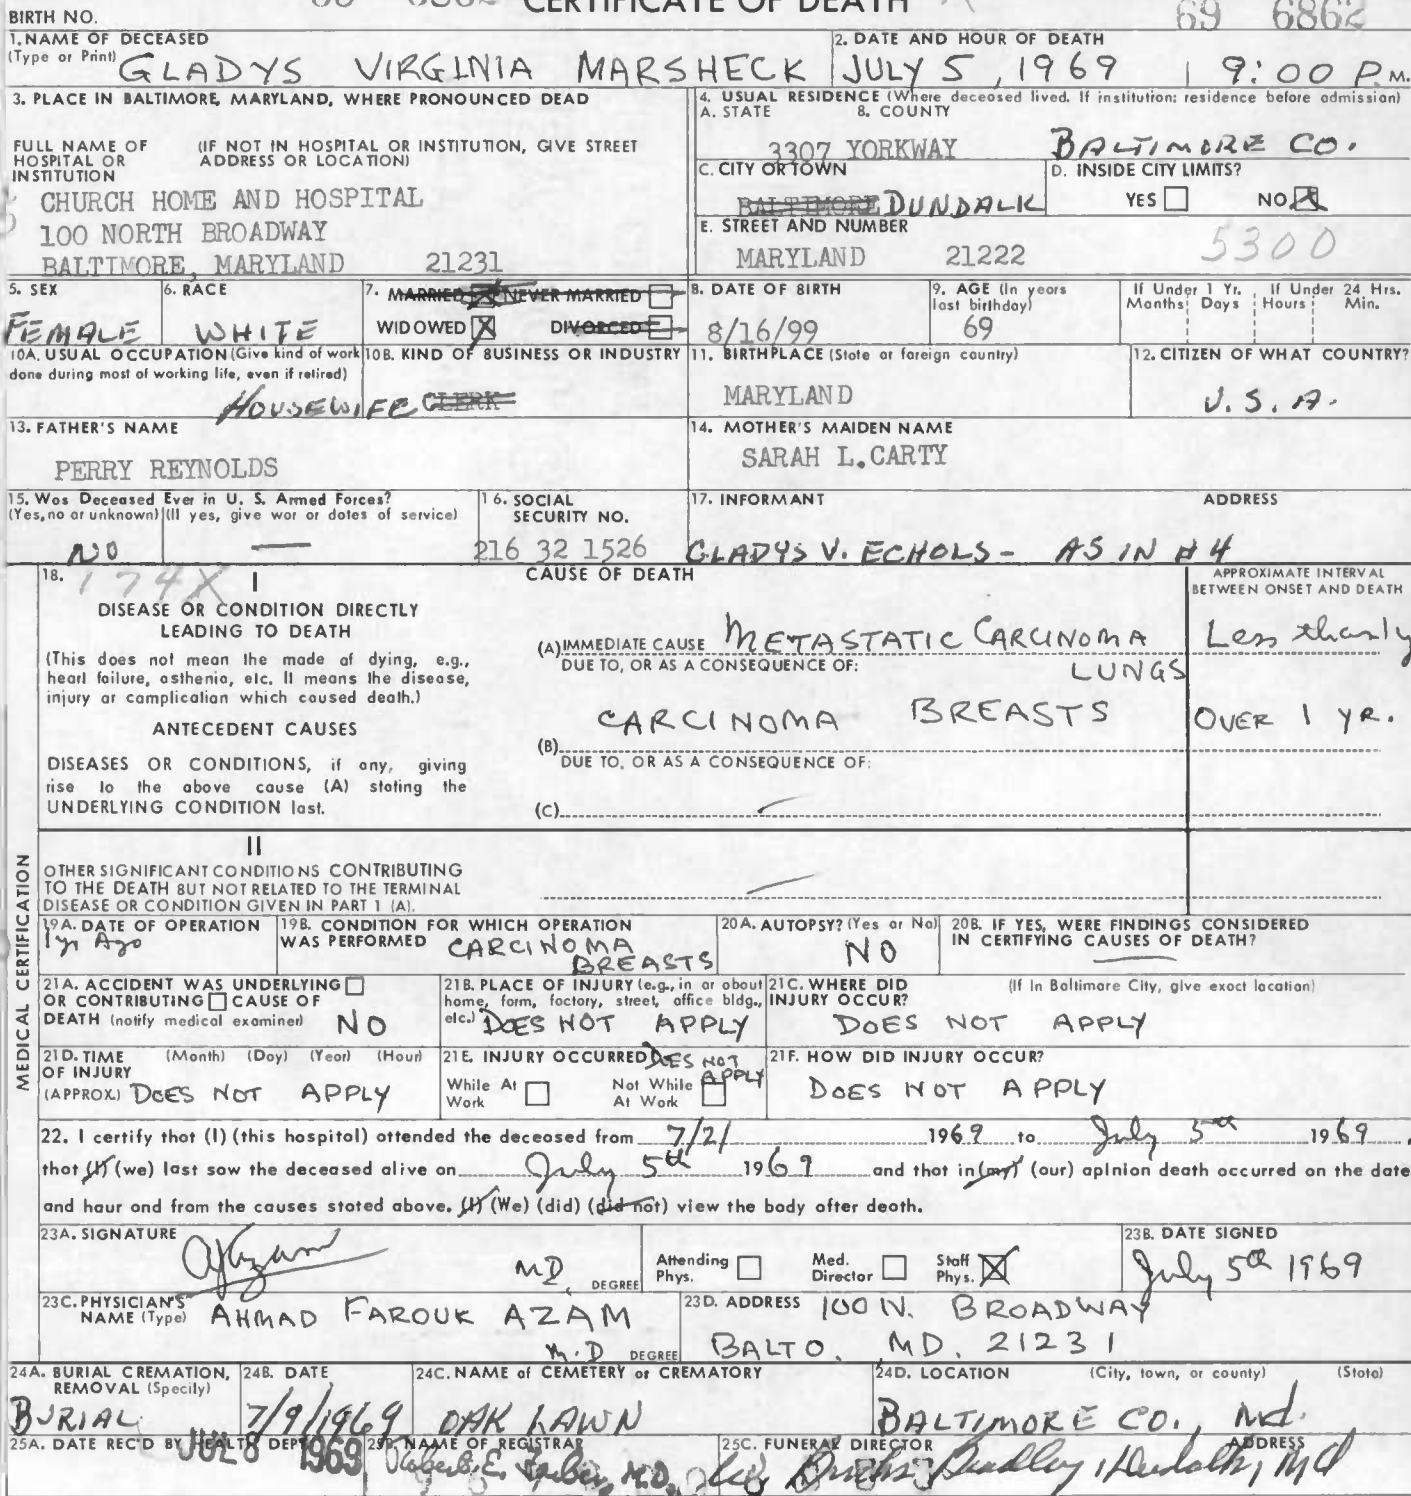 CERTIFICATE OF DEATH
69 6862
BIRTH NO.
1. NAME OF DECEASED
(Type or Print) GLADYS VIRGINIA MARSHECK
2. DATE AND HOUR OF DEATH
JULY 5, 1969 9:00 P.M.
3. PLACE IN BALTIMORE, MARYLAND, WHERE PRONOUNCED DEAD
FULL NAME OF HOSPITAL OR INSTITUTION
(IF NOT IN HOSPITAL OR INSTITUTION, GIVE STREET ADDRESS OR LOCATION)
CHURCH HOME AND HOSPITAL
100 NORTH BROADWAY
BALTIMORE, MARYLAND 21231
4. USUAL RESIDENCE (Where deceased lived. If institution: residence before admission)
A. STATE B. COUNTY
3307 YORKWAY BALTIMORE CO.
C. CITY OR TOWN
BALTIMORE DUNDALK
D. INSIDE CITY LIMITS?
YES NO X
E. STREET AND NUMBER
5300
MARYLAND 21222
5. SEX
FEMALE
6. RACE
WHITE
7. MARRIED X NEVER MARRIED
WIDOWED X DIVORCED
8. DATE OF BIRTH
8/16/99
9. AGE (In years last birthday)
69
If Under 1 Yr. Months Days
If Under 24 Hrs. Hours Min.
10A. USUAL OCCUPATION (Give kind of work done during most of working life, even if retired)
HOUSEWIFE
10B. KIND OF BUSINESS OR INDUSTRY
CLERK
11. BIRTHPLACE (State or foreign country)
MARYLAND
12. CITIZEN OF WHAT COUNTRY?
U.S.A.
13. FATHER'S NAME
PERRY REYNOLDS
14. MOTHER'S MAIDEN NAME
SARAH L. CARTY
15. Was Deceased Ever in U. S. Armed Forces?
(Yes, no or unknown) (If yes, give war or dates of service)
NO —
16. SOCIAL SECURITY NO.
216 32 1526
17. INFORMANT ADDRESS
GLADYS V. ECHOLS - AS IN #4
MEDICAL CERTIFICATION
18. 174X
I
DISEASE OR CONDITION DIRECTLY
LEADING TO DEATH
(This does not mean the mode of dying, e.g.,
heart failure, asthenia, etc. It means the disease,
injury or complication which caused death.)
ANTECEDENT CAUSES
DISEASES OR CONDITIONS, if any, giving
rise to the above cause (A) stating the
UNDERLYING CONDITION last.
CAUSE OF DEATH
APPROXIMATE INTERVAL BETWEEN ONSET AND DEATH
(A) IMMEDIATE CAUSE METASTATIC CARCINOMA LUNGS
Less than 1 y
DUE TO, OR AS A CONSEQUENCE OF:
(B) CARCINOMA BREASTS
OVER 1 YR.
DUE TO, OR AS A CONSEQUENCE OF:
(C)
II
OTHER SIGNIFICANT CONDITIONS CONTRIBUTING
TO THE DEATH BUT NOT RELATED TO THE TERMINAL
DISEASE OR CONDITION GIVEN IN PART 1 (A).
19A. DATE OF OPERATION
1 yr Ago
19B. CONDITION FOR WHICH OPERATION WAS PERFORMED
CARCINOMA BREASTS
20A. AUTOPSY? (Yes or No)
NO
20B. IF YES, WERE FINDINGS CONSIDERED IN CERTIFYING CAUSES OF DEATH?
21A. ACCIDENT WAS UNDERLYING OR CONTRIBUTING CAUSE OF DEATH (notify medical examiner) NO
21B. PLACE OF INJURY (e.g., in or about home, farm, factory, street, office bldg., etc.) DOES NOT APPLY
21C. WHERE DID INJURY OCCUR? (If in Baltimore City, give exact location)
DOES NOT APPLY
21D. TIME OF INJURY (Month) (Day) (Year) (Hour)
(APPROX.) DOES NOT APPLY
21E. INJURY OCCURRED DOES NOT APPLY
While At Work Not While At Work
21F. HOW DID INJURY OCCUR?
DOES NOT APPLY
22. I certify that (I) (this hospital) attended the deceased from 7/2/ 1969 to July 5th 1969.
that (I) (we) last saw the deceased alive on July 5th 1969 and that in (my) (our) opinion death occurred on the date
and hour and from the causes stated above. (I) (We) (did) (did not) view the body after death.
23A. SIGNATURE
M.D. DEGREE
Attending Phys. Med. Director Staff Phys. X
23B. DATE SIGNED
July 5th 1969
23C. PHYSICIAN'S NAME (Type) AHMAD FAROUK AZAM
M.D DEGREE
23D. ADDRESS 100 N. BROADWAY
BALTO. MD. 21231
24A. BURIAL CREMATION, REMOVAL (Specify)
BURIAL
24B. DATE
7/9/1969
24C. NAME of CEMETERY or CREMATORY
OAK LAWN
24D. LOCATION (City, town, or county) (State)
BALTIMORE CO., Md.
25A. DATE REC'D BY HEALTH DEPT
JUL 8 1969
25B. NAME OF REGISTRAR
Robert E. Farber, M.D.
25C. FUNERAL DIRECTOR ADDRESS
Bradley, Dundalk, Md